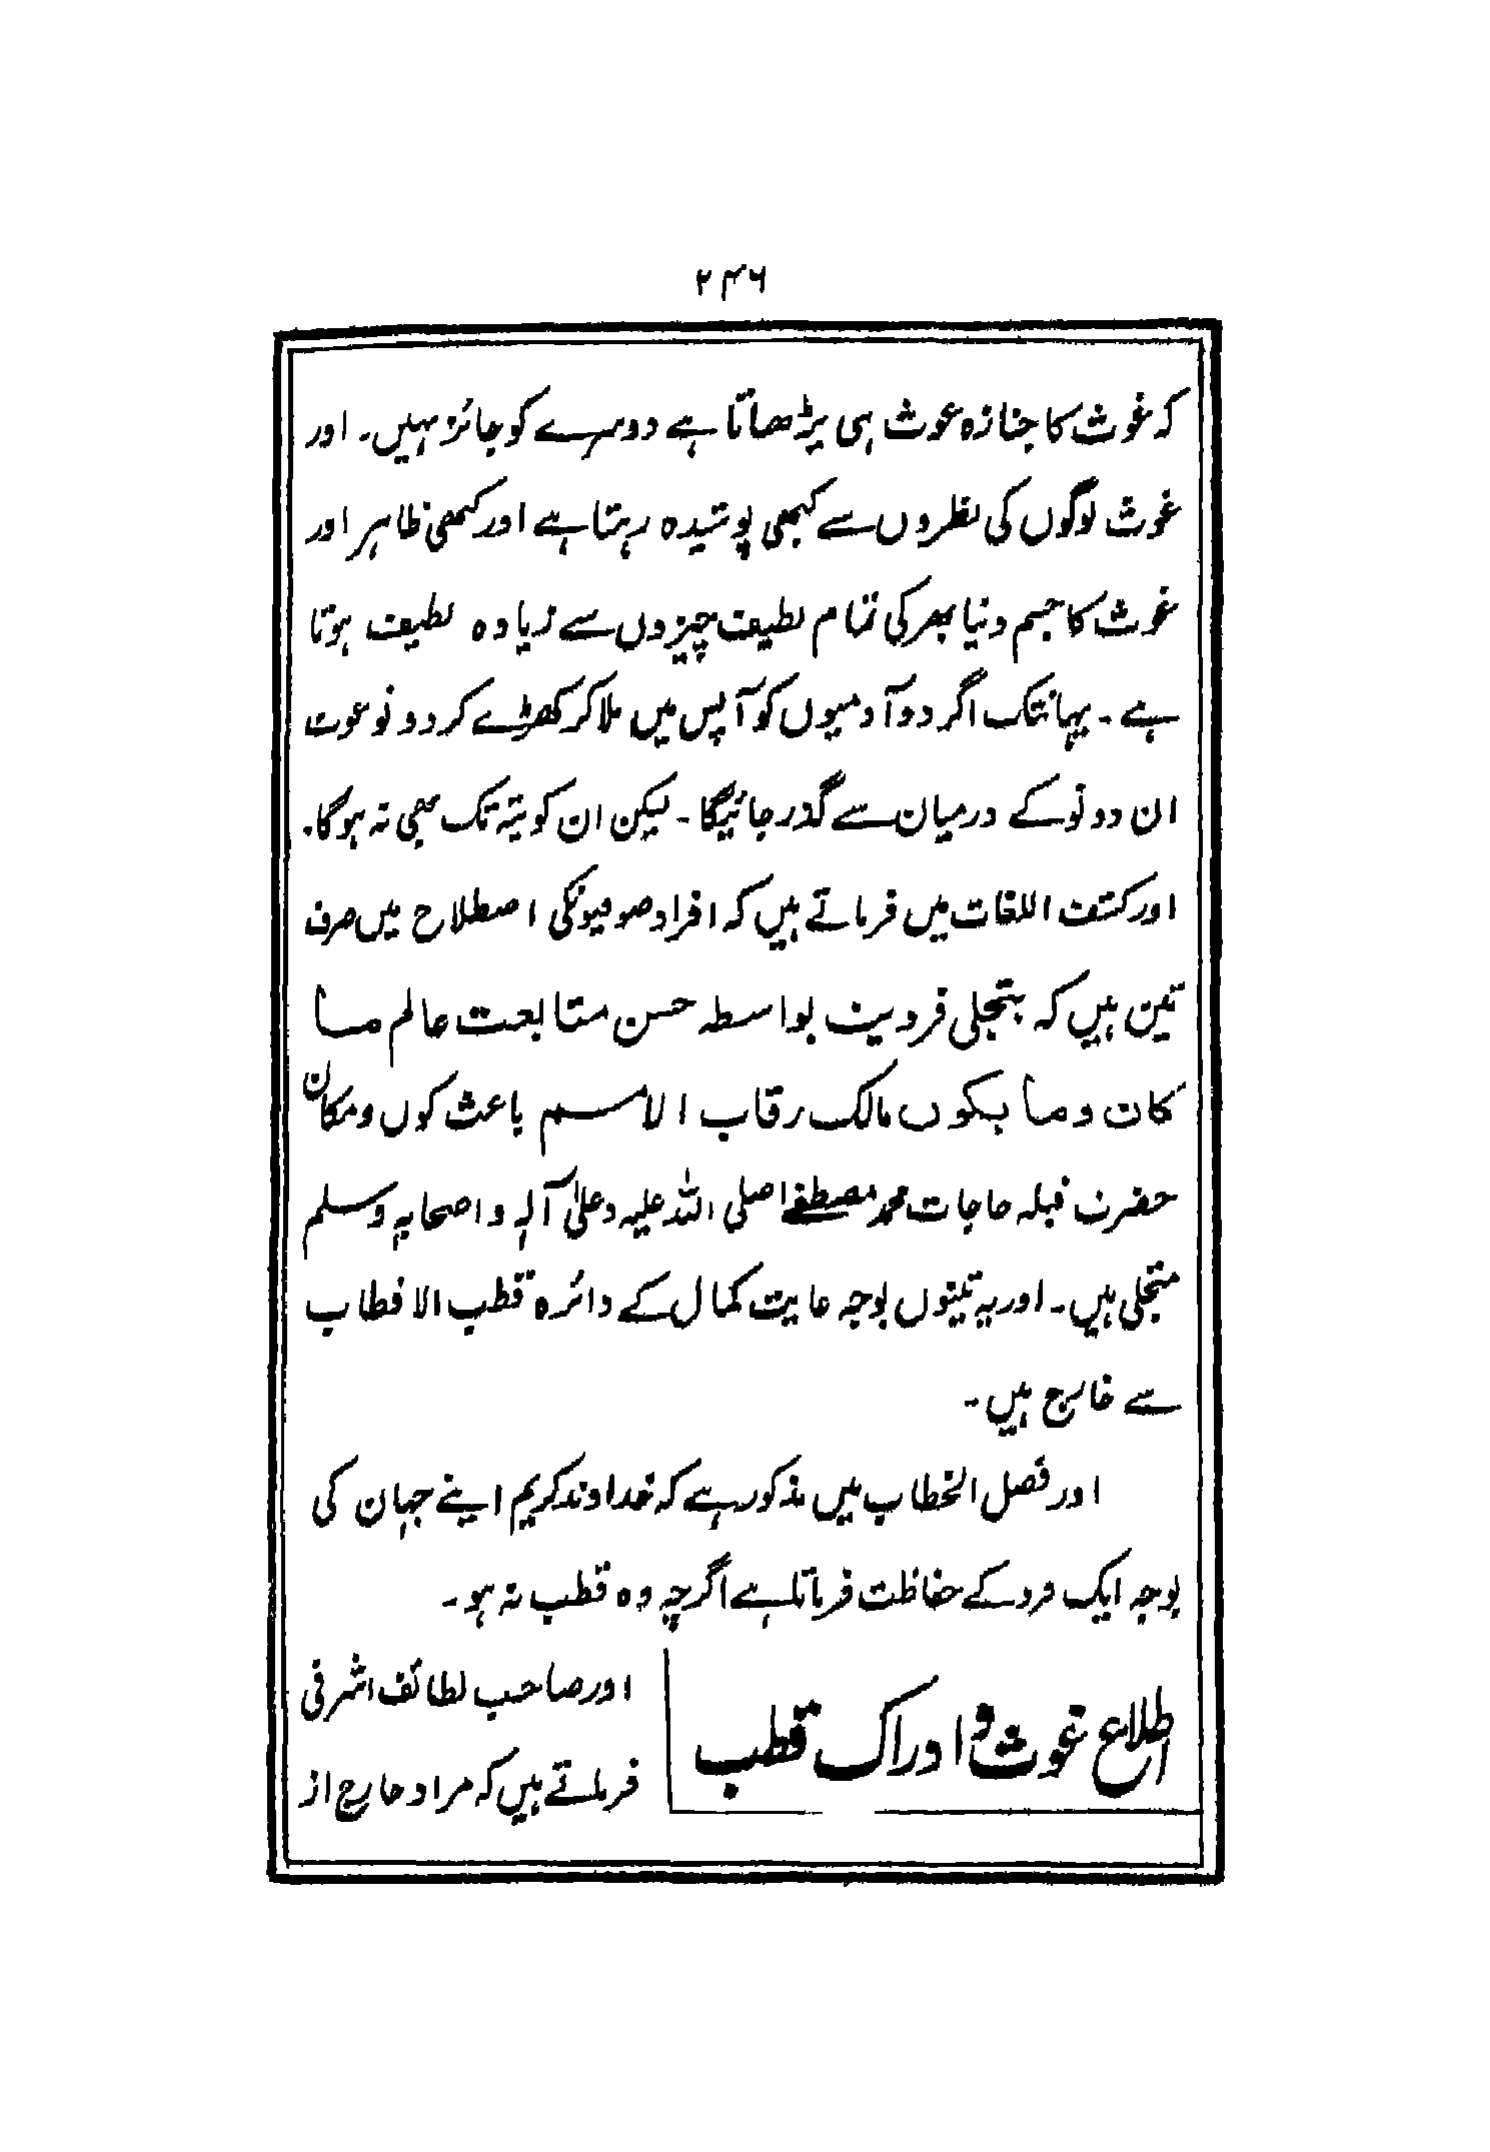 ۲۴۶
کہ غوث کا جنازہ غوث ہی پڑھاتا ہے دوسرے کو جائز نہیں۔ اور
غوث لوگوں کی نظروں سے کبھی پوشیدہ رہتا ہے اور کبھی ظاہر اور
غوث کا جسم دنیا بھر کی تمام لطیف چیزوں سے زیادہ لطیف ہوتا
ہے۔ یہانتک اگر دو آدمیوں کو آپس میں ملا کر کھڑے کر دو تو غوث
ان دونو کے درمیان سے گذر جائیگا۔ لیکن ان کو پتہ تک بھی نہ ہوگا۔
اور کشف اللغات میں فرماتے ہیں کہ افراد صوفیونکی اصطلاح میں صرف
تین ہیں کہ بتجلی فردیت بواسطہ حسن متابعت عالم ما
کان وما یکون مالک رقاب الامم باعث کون و مکان
حضرت قبلہ حاجات محمد مصطفےٰ صلی اللہ علیہ وعلیٰ آلہٖ واصحابہٖ وسلم
متجلی ہیں۔ اور یہ تینوں بوجہ غایت کمال کے دائرہ قطب الاقطاب
سے خارج ہیں۔
اور فصل الخطاب میں مذکور ہے کہ خداوند کریم اپنے جہان کی
بوجہ ایک فرد کے حفاظت فرماتا ہے اگرچہ وہ قطب نہ ہو۔
اطلاع غوث و ادراک قطب
اور صاحب لطائف اشرفی
فرماتے ہیں کہ مراد خارج از